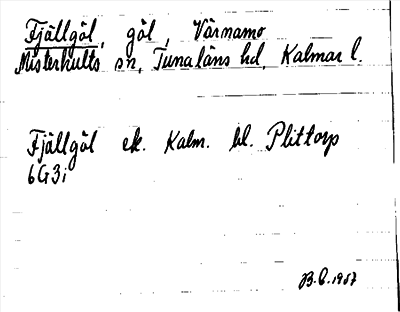 Fjällgöl, göl, Värnamo
Misterhults sn, Tunaläns hd, Kalmar l.
Fjällgöl ek. Kalm. bl. Plittorp
6G3i
B.C.1957